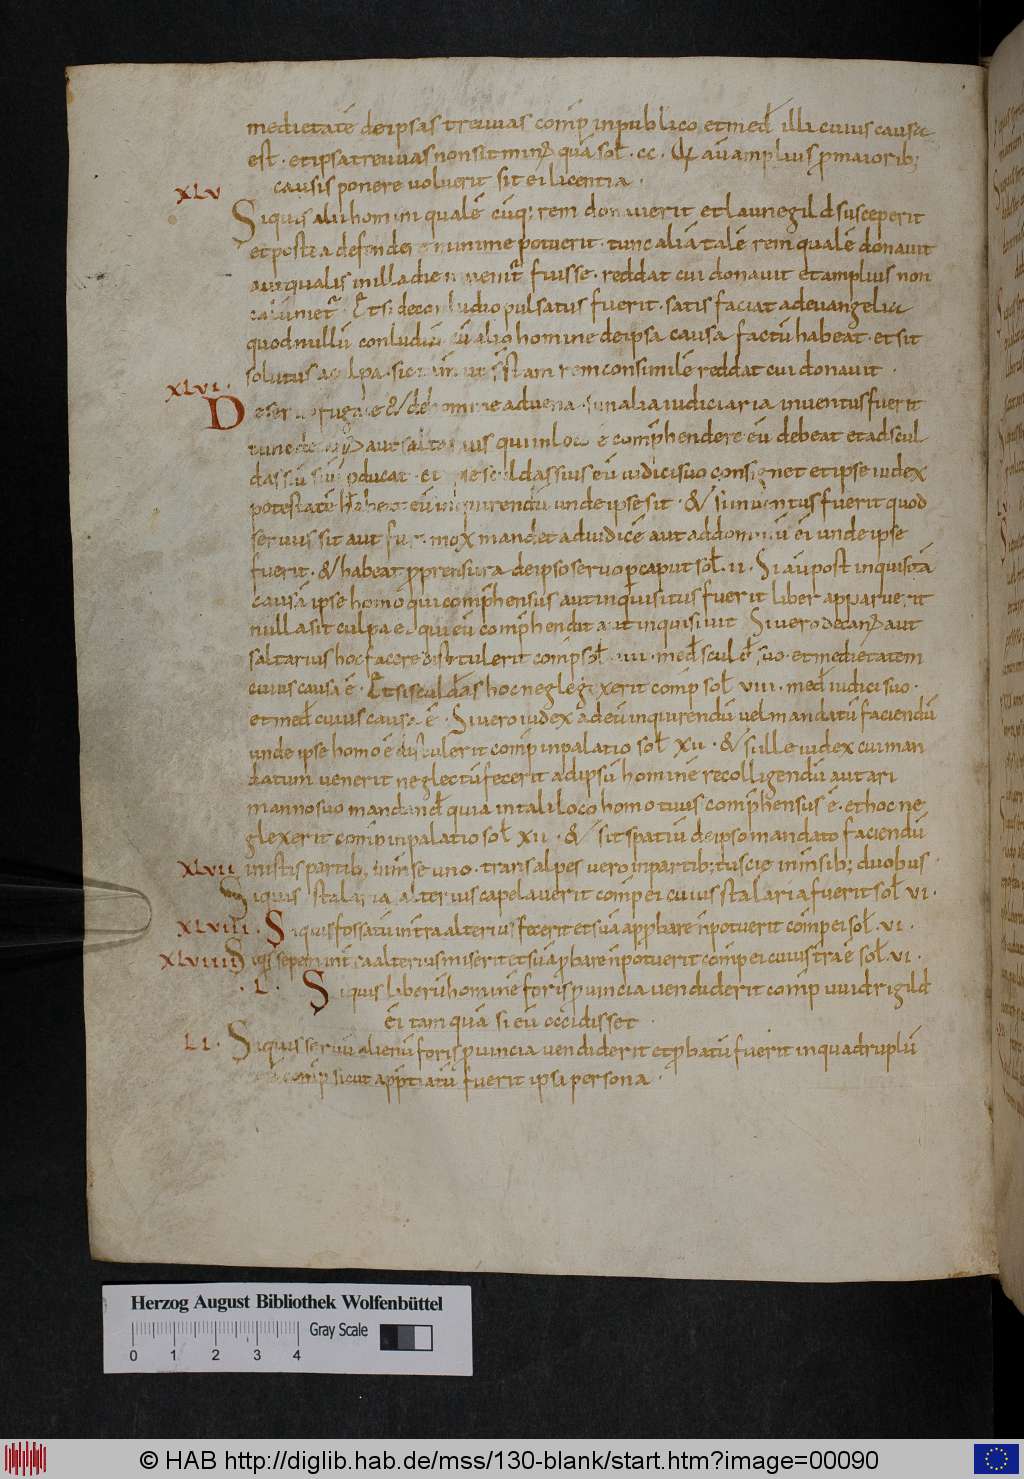 medietatē deipsas treuuas comp̄ inpublico etmed̄ illi cuius causa
est · etipsatreuuas nonsitmin᷒ quā sol̄ · cc · Q̄ aūamplius p̄maiorib;
causis ponere uoluerit sit ei licentia ·
XLV
Siquis alii homini qualē cūq; rem donauerit etlaunegild susceperit
etpostea defendere minime potuerit · tunc aliā talē rem qualē donauit
aut qualis inilladie fuisse · reddat cui donauit etamplius non
Etsi deconludio pulsatus fuerit · satis faciat adeuangelia
quodnullū conludiū cū alio homine deipsa causa factū habeat · etsit
solutus aculpa · rem consimilē reddat cui donauit ·
XLVI ·
De seruo fugace & dehomine aduena · sinalia iudiciaria inuentus fuerit
tunc aut qui inloco ē comp̄hendere eū debeat etadscul
dassiū suū p̄ducat · et ipse sculdassius eū iudicisuo consignet etipse iudex
potestatē habeat eū inquirendū unde ipse sit · & siinuentus fuerit quod
seruus sit aut fur · mox mandet adiudicē aut addominū ei unde ipse
fuerit · & habeat p̄prensura deipso seruo p̄caput sol̄ · ii · Si aūpost inquisitā
causā ipse homo qui comp̄hensus autinquisitus fuerit liber apparuerit
nulla sit culpa ei qui eū comp̄hendit aut inquisiuit Si uero decan᷒ aut
saltarius hoc facere distulerit comp̄ sol̄ · iiii · med̄ sculd̄ suo · etmedietatem
cuius causa ē · Etsi sculdas hoc neglegexerit comp sol̄ viii · med̄ iudici suo ·
etmed̄ cuius causa ē · Si uero iudex adeū inquirendū uel mandatū faciendū
unde ipse homo ē distulerit comp̄ inpalatio sol̄ xii · & si ille iudex cui man
datum uenerit neglectū fecerit adipsū hominē recolligendū aut ari
manno suo mandand̄ quia intali loco homo tuus comp̄hensus ē · ethoc ne
glexerit comp̄ inpalatio sol̄ xii · & sit spatiū deipso mandato faciendū
XLVII inistis partib; mense uno · trans alpes uero inpartib; tuscie inmsib; duobus ·
Siquis stalaria alterius capelauerit comp̄ ei cuius stalaria fuerit sol̄ vi ·
XLVIII · Siquis fossatū intra alterius fecerit et suā app̄bare n̄potuerit comp̄ ei sol̄ · vi ·
XLVIIII Siqis sepem intra alterius miserit et suā p̄bare n̄potuerit comp̄ ei cuius tra ē sol̄ vi ·
· L · Siquis liberū hominē foris p̄uincia uendiderit comp̄ uuidrigild̄
ei tam quā si eū occidisset ·
LI · Siquis seruū alienū foris p̄uincia uendiderit et p̄batū fuerit inquadruplū
comp̄ sicut app̄tiatū fuerit ipsi persona ·
Herzog August Bibliothek Wolfenbüttel
Gray Scale
0 1 2 3 4
© HAB http://diglib.hab.de/mss/130-blank/start.htm?image=00090